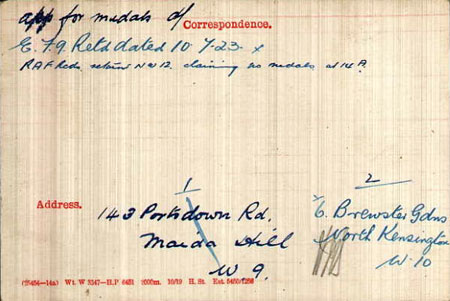 app for medals of
Correspondence.
E. F 9. Retd dated 10.7.23 x
RAF Reds. return NW 12. claiming no medals at 14 P.
Address.
1
143 Portsdown Rd.
Maida Hill
W 9.
2
6. Brewster Gdns
North Kensington
W. 10
Wt. W 5347—H.P 6421 1000m. 10/19 H. St.